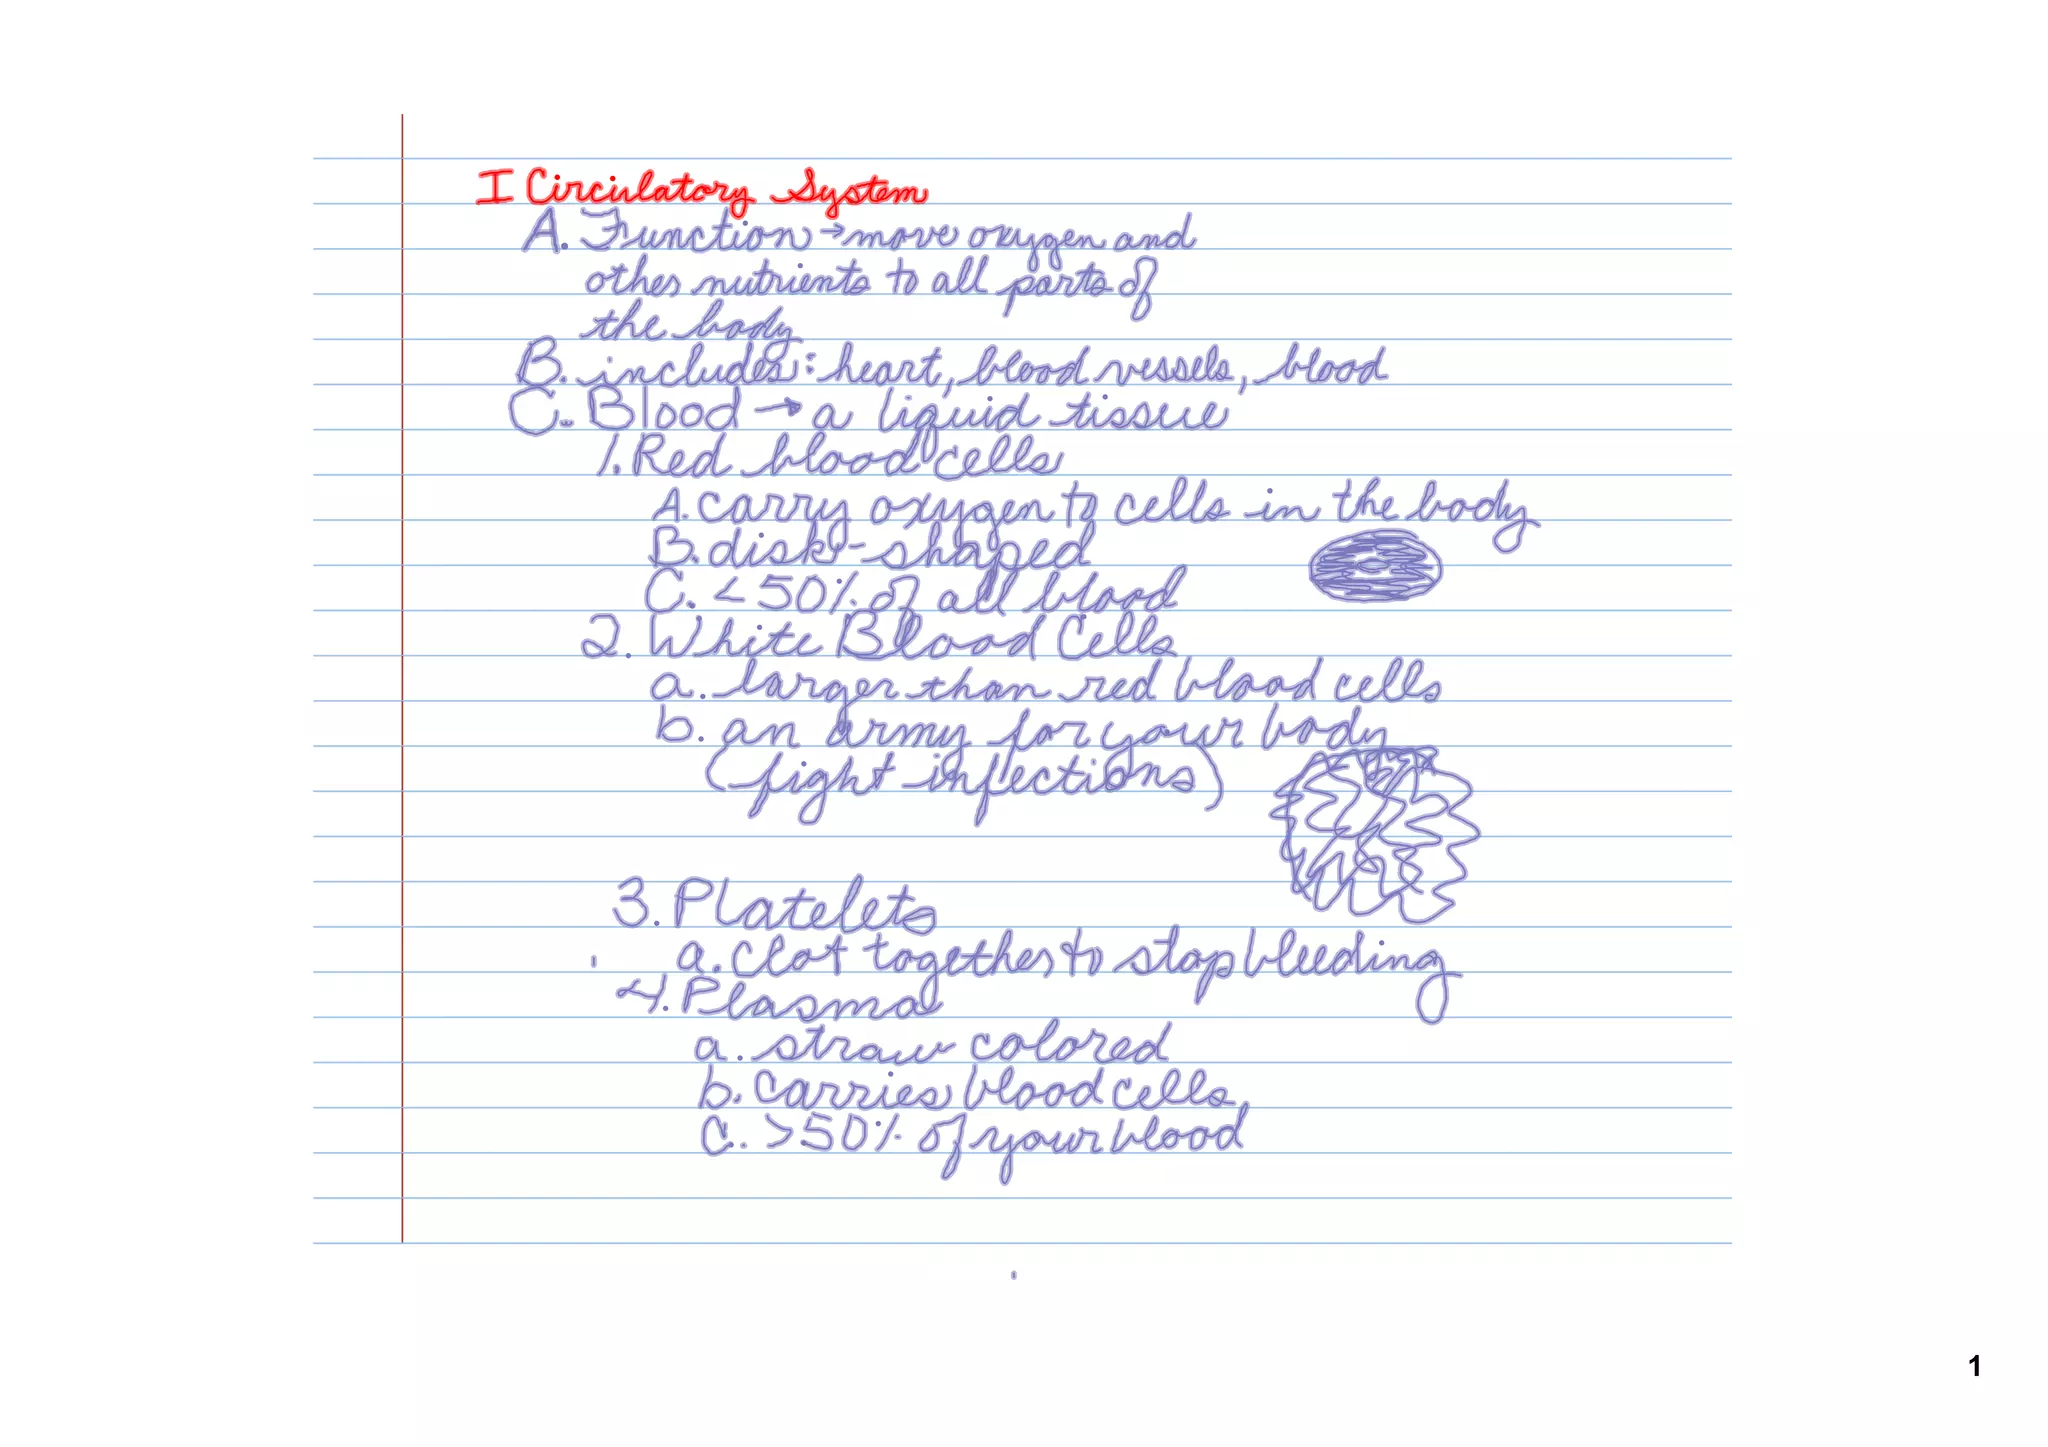 I Circulatory System
A. Function → move oxygen and
other nutrients to all parts of
the body
B. includes: heart, blood vessels, blood
C. Blood → a liquid tissue
1. Red blood cells
A. carry oxygen to cells in the body
B. disk-shaped
C. < 50% of all blood
2. White Blood Cells
a. larger than red blood cells
b. an army for your body
(fight infections)
3. Platelets
a. clot together to stop bleeding
4. Plasma
a. straw colored
b. carries blood cells
c. > 50% of your blood
1